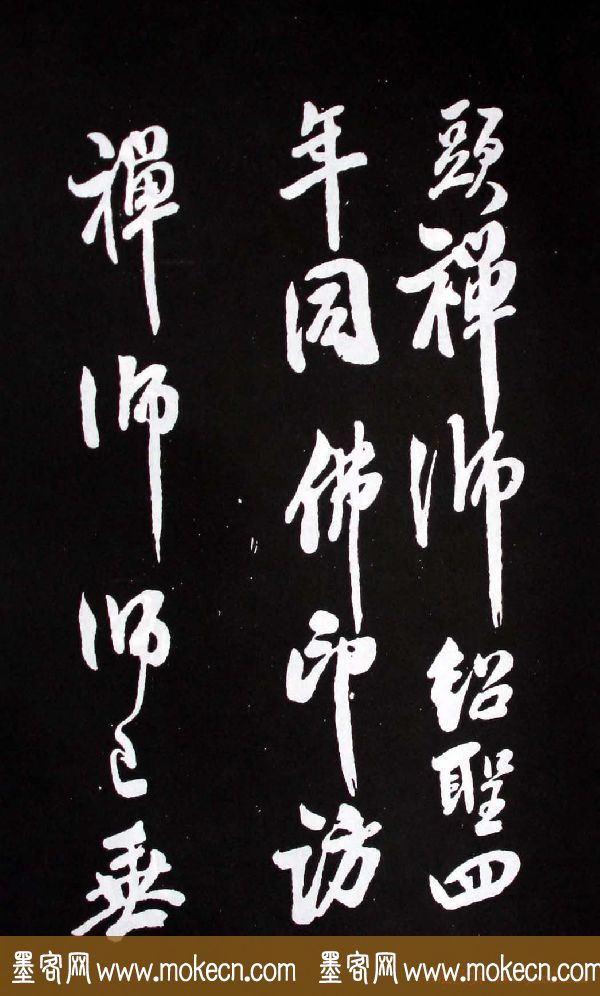 頭禪師紹聖四
年同佛印訪
禪師師已垂
墨客网 www.mokecn.com 墨客网 www.mokecn.com